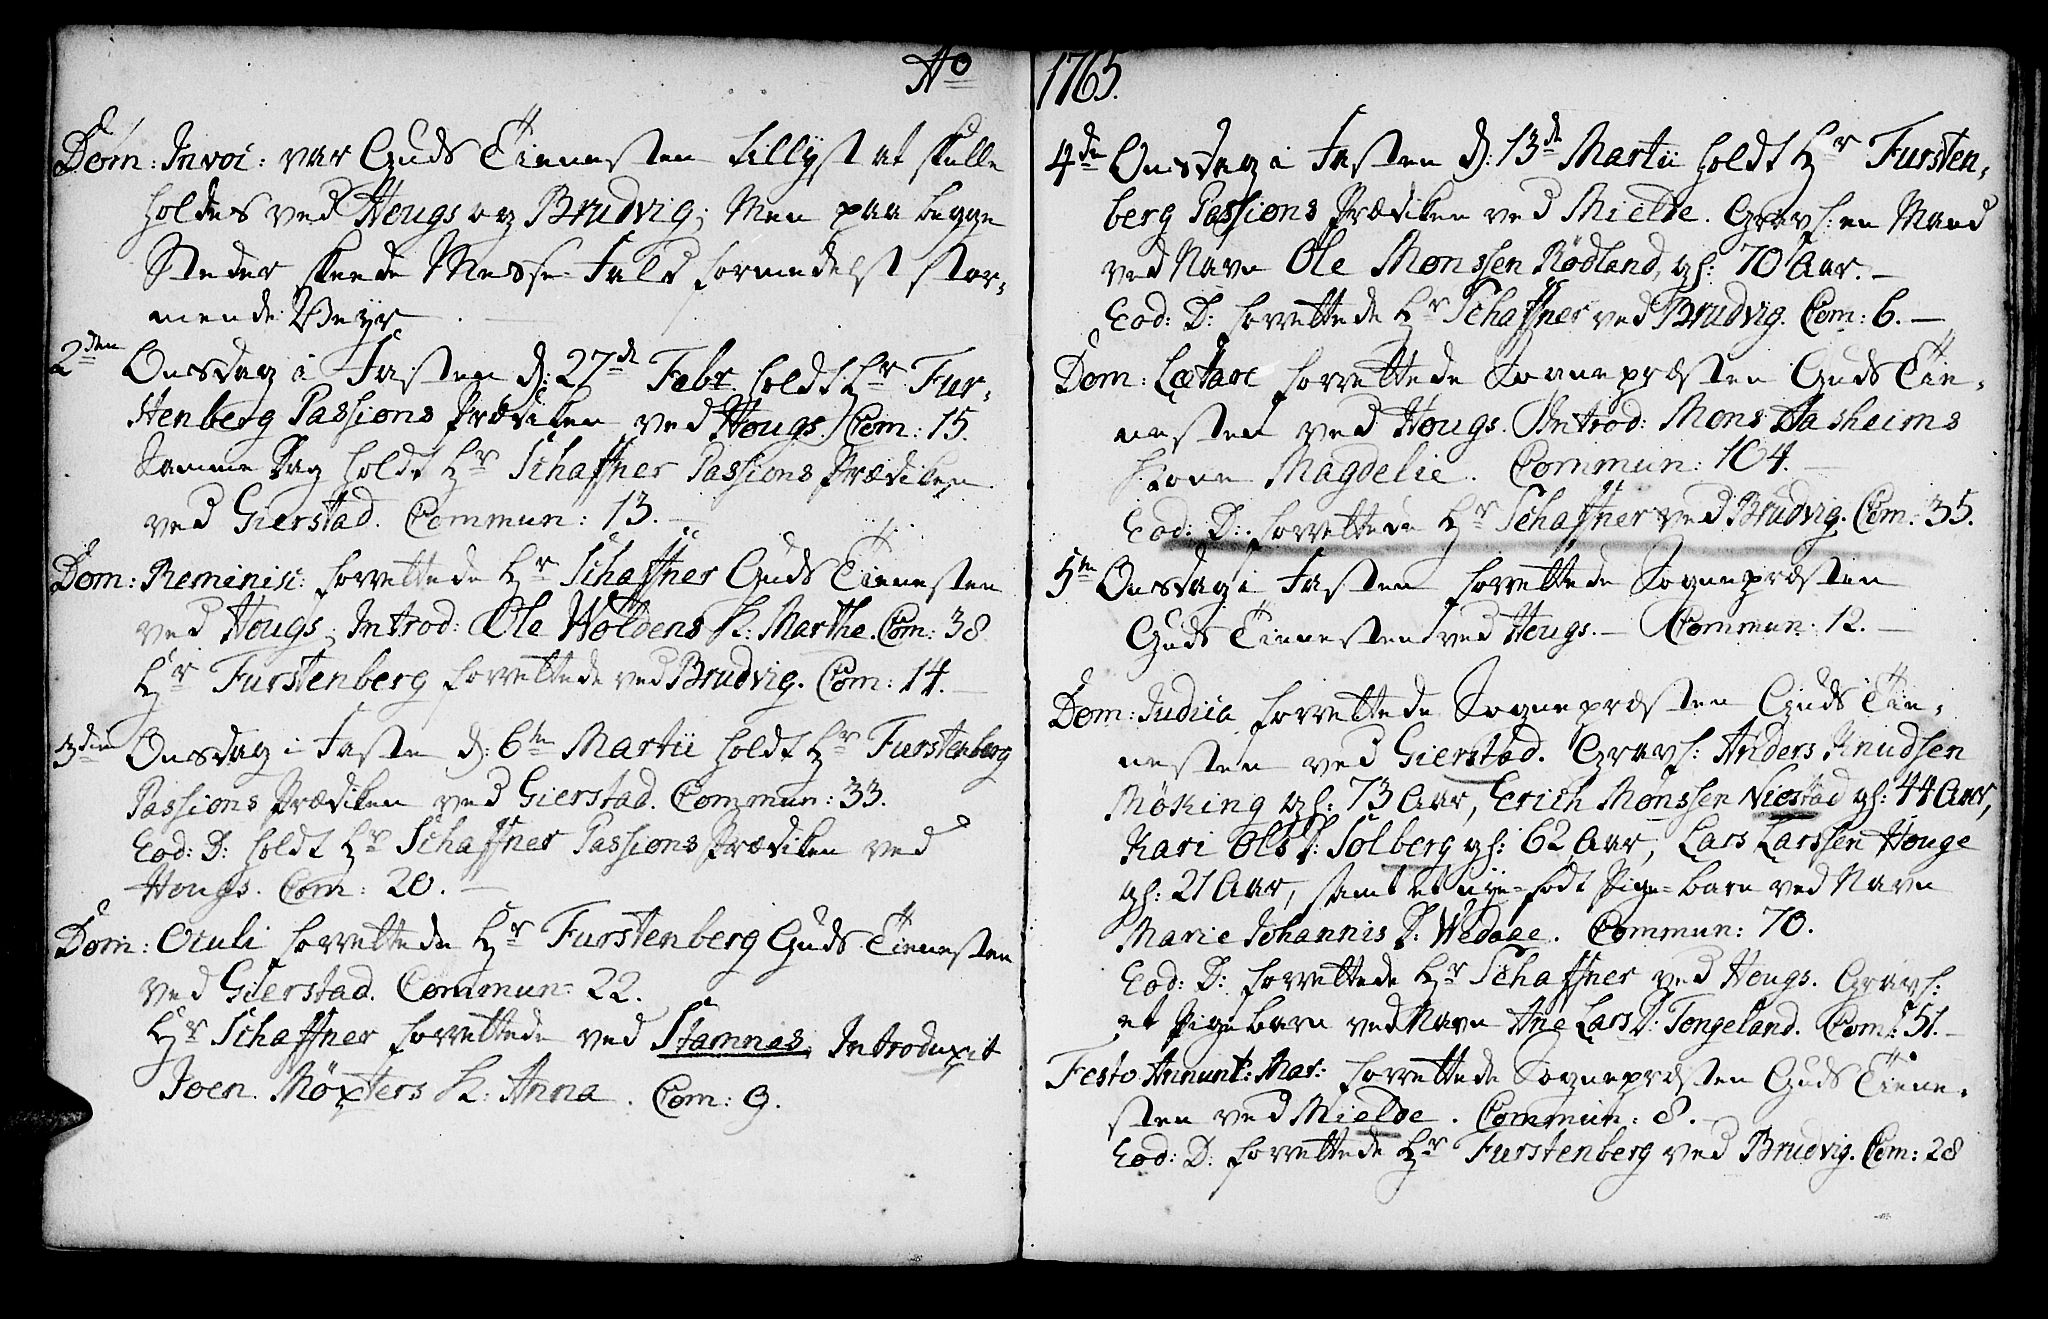 Ao
Dom: Invoc: var Guds Tienesten tillyst at skulle
holdes ved Hougs og Brudvig; Men paa begge
Steder skeede Messe-Fald formedelst stor-
mende Veyr.
2den Onsdag i Fasten d: 27de Febr. holdt Hr Fur-
stenberg Passions Prædiken ved Hougs. Com: 15.
Samme Dag holdt Hr Schaffner Passions Prædiken
ved Gierstad. Commun: 13.
Dom: Reminisc: forrettede Hr Schaffner Guds Tienesten
ved Hougs, Introd: Ole Woldens K: Marthe. Com: 38
Hr Furstenberg forrettede ved Brudvig. Com: 14.
3die Onsdag i Faste d: 6te Martii holdt Hr Furstenberg
Passions Prædiken ved Gierstad. Commun: 33.
Eod: D: holdt Hr Schaffner Passions Prædiken ved
Hougs. Com: 20.
Dom: Oculi forrettede Hr Furstenberg Guds Tienesten
ved Gierstad. Commun: 22.
Hr Schaffner forrettede ved Stamnes, Introduxit
Joen Möxters K: Anna. Com: 9.
1765.
4de Onsdag i Fasten d: 13de Martii holdt Hr Fursten-
berg Passions Prædiken ved Mielde. Gravf: en Mand
ved Navn Ole Monssen Rödland, gl: 70 Aar.
Eod: D: forrettede Hr Schaffner ved Brudvig. Com: 6.
Dom: Lætare forrettede Sognepræsten Guds Tie-
nesten ved Hougs. Introd: Mons Aasheims
Kone Magdelie. Commun: 104.
Eod: D: forrettede Hr Schaffner ved Brudvig. Com: 35.
5te Onsdag i Fasten forrettede Sognepræsten
Guds Tienesten ved Hougs. Commun: 12.
Dom: Judica forrettede Sognepræsten Guds Tie-
nesten ved Gierstad. Gravf: Anders Knudsen
Möking gl: 73 Aar, Erich Monssen Niestad gl: 44 Aar,
Kari Ols D: Solberg gl: 62 Aar, Lars Larssen Houge
gl: 21 Aar, samt et nye-födt Pige-barn ved Navn
Marie Johannis D: Wedaae. Commun: 70.
Eod: D: forrettede Hr Schaffner ved Hougs. Gravf:
et Pigebarn ved Navn Ane Lars D: Tengeland. Com: 51.
Festo Annunt: Mar: forrettede Sognepræsten Guds Tiene-
sten ved Mielde. Commun: 8.
Eod: D: forrettede Hr Furstenberg ved Brudvig. Com: 28